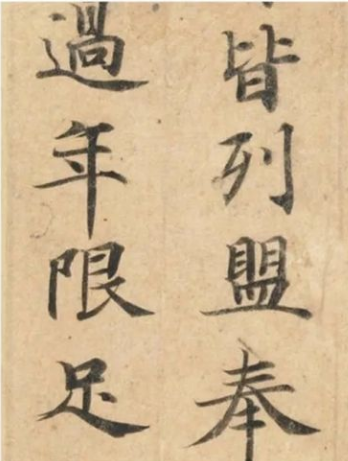 皆列盟奉
過年限足